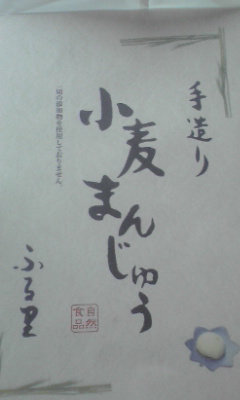 手造り
小麦
まんじゅう
一切の添加物を使用しておりません。
ふる里
自然
食品